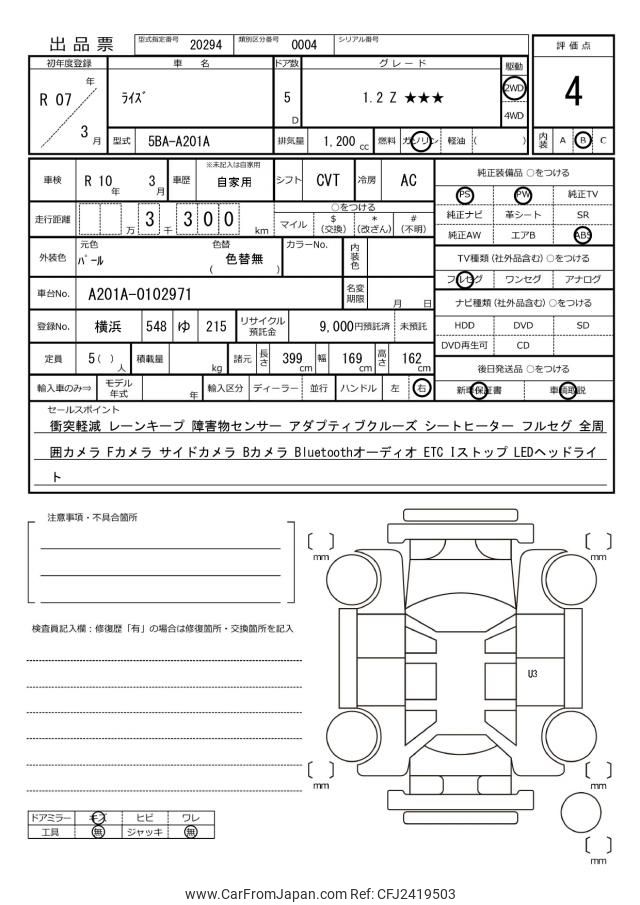 出品票 型式指定番号 20294 類別区分番号 0004 シリアル番号
評価点
4
内装 A B C
初年度登録 車 名 ドア数 グレード 駆動
R 07 年 3 月
ライズ 5 D 1.2 Z ★★★ 2WD
4WD
型式 5BA-A201A 排気量 1,200 cc 燃料 ガソリン 軽油 ( )
車検 R 10 年 3 月 車歴 ※未記入は自家用 自家用 シフト CVT 冷房 AC
走行距離 万 3 千 3 0 0 km
○をつける
マイル $ (交換) * (改ざん) # (不明)
外装色 元色 パール 色替 ( 色替無 ) カラーNo. 内装色
車台No. A201A-0102971 名変期限 月 日
登録No. 横浜 548 ゆ 215 リサイクル預託金 9,000円預託済 未預託
定員 5 ( ) 人 積載量 kg 諸元 長さ 399 cm 幅 169 cm 高さ 162 cm
輸入車のみ⇒ モデル年式 年 輸入区分 ディーラー 並行 ハンドル 左 右
純正装備品 ○をつける
PS PW 純正TV
純正ナビ 革シート SR
純正AW エアB ABS
TV種類 (社外品含む) ○をつける
フルセグ ワンセグ アナログ
ナビ種類 (社外品含む) ○をつける
HDD DVD SD
DVD再生可 CD
後日発送品 ○をつける
新車保証書 車輌取説
セールスポイント
衝突軽減 レーンキープ 障害物センサー アダプティブクルーズ シートヒーター フルセグ 全周
囲カメラ Fカメラ サイドカメラ Bカメラ Bluetoothオーディオ ETC Iストップ LEDヘッドライ
ト
注意事項・不具合箇所
検査員記入欄：修復歴「有」の場合は修復箇所・交換箇所を記入
ドアミラー キズ ヒビ ワレ
工具 無 ジャッキ 無
mm
mm
U3
mm
mm
mm
www.CarFromJapan.com Ref: CFJ2419503